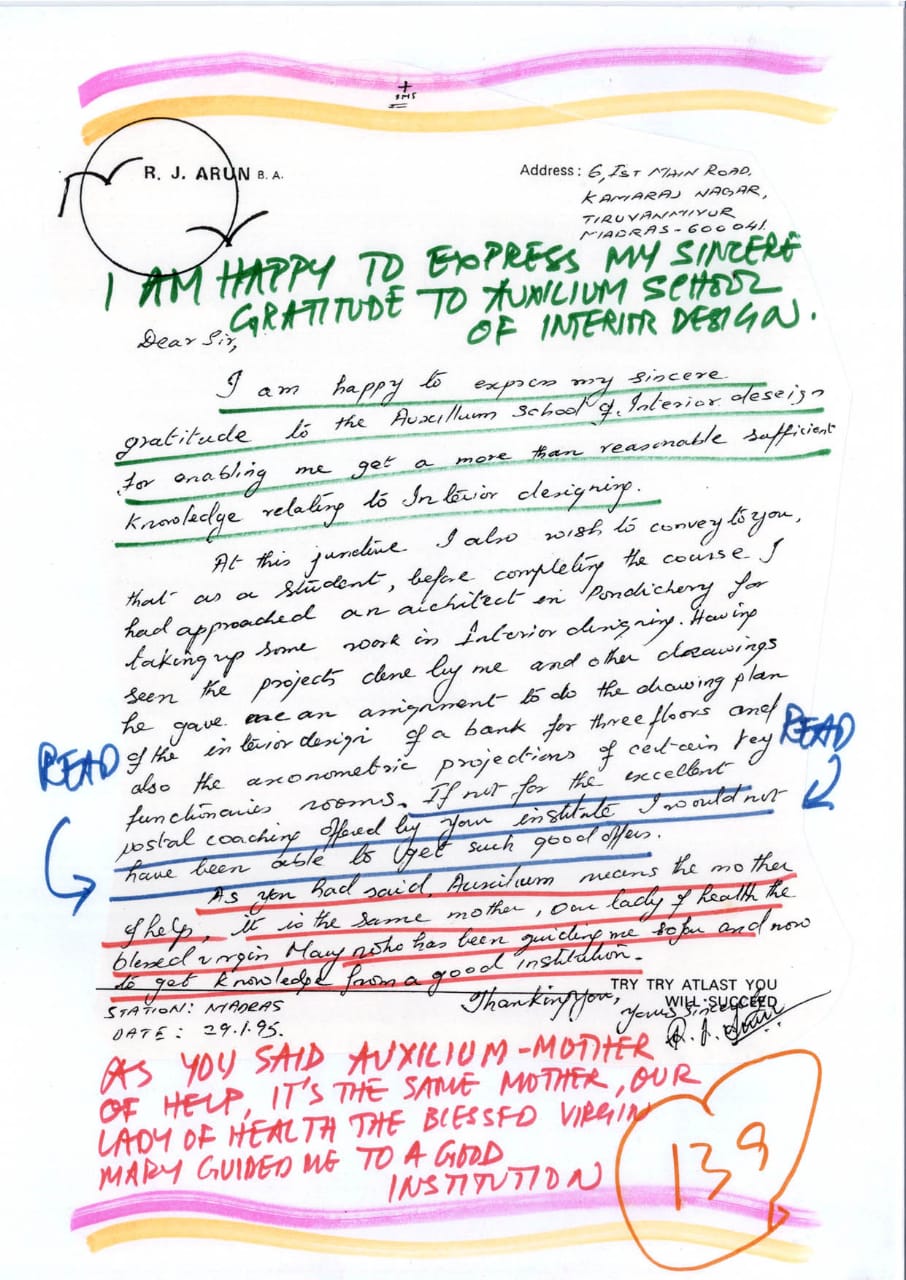 +
SMS
R. J. ARUN B. A.
Address : 6, IST MAIN ROAD,
KAMARAJ NAGAR,
TIRUVANMIYUR
MADRAS-600041.
I AM HAPPY TO EXPRESS MY SINCERE
GRATITUDE TO AUXILIUM SCHOOL
OF INTERIOR DESIGN.
Dear Sir,
I am happy to express my sincere
gratitude to the Auxillum School of Interior deseign
for enabling me get a more than reasonable sufficient
knowledge relating to Interior designing.
At this juncture I also wish to convey to you,
that as a student, before completing the course I
had approached an architect in Pondicherry for
taking up some work in Interior designing. Having
seen the projects done by me and other drawings
he gave me an assignment to do the drawing plan
READ of the interior design of a bank for three floors and READ
also the axonometric projections of certain key
functionaries rooms. If not for the excellent
postal coaching offered by your institute I would not
have been able to get such good offers.
As you had said, Auxilium means the mother
of help, it is the same mother, our lady of health the
blessed virgin Mary who has been guiding me so far and now
to get knowledge from a good institution.
TRY TRY ATLAST YOU
WILL SUCCEED
Thanking You,
Yours Sincerely
R. J. Arun
STATION: MADRAS
DATE: 29.1.95.
AS YOU SAID AUXILIUM-MOTHER
OF HELP, IT'S THE SAME MOTHER, OUR
LADY OF HEALTH THE BLESSED VIRGIN
MARY GUIDED ME TO A GOOD
INSTITUTION
139